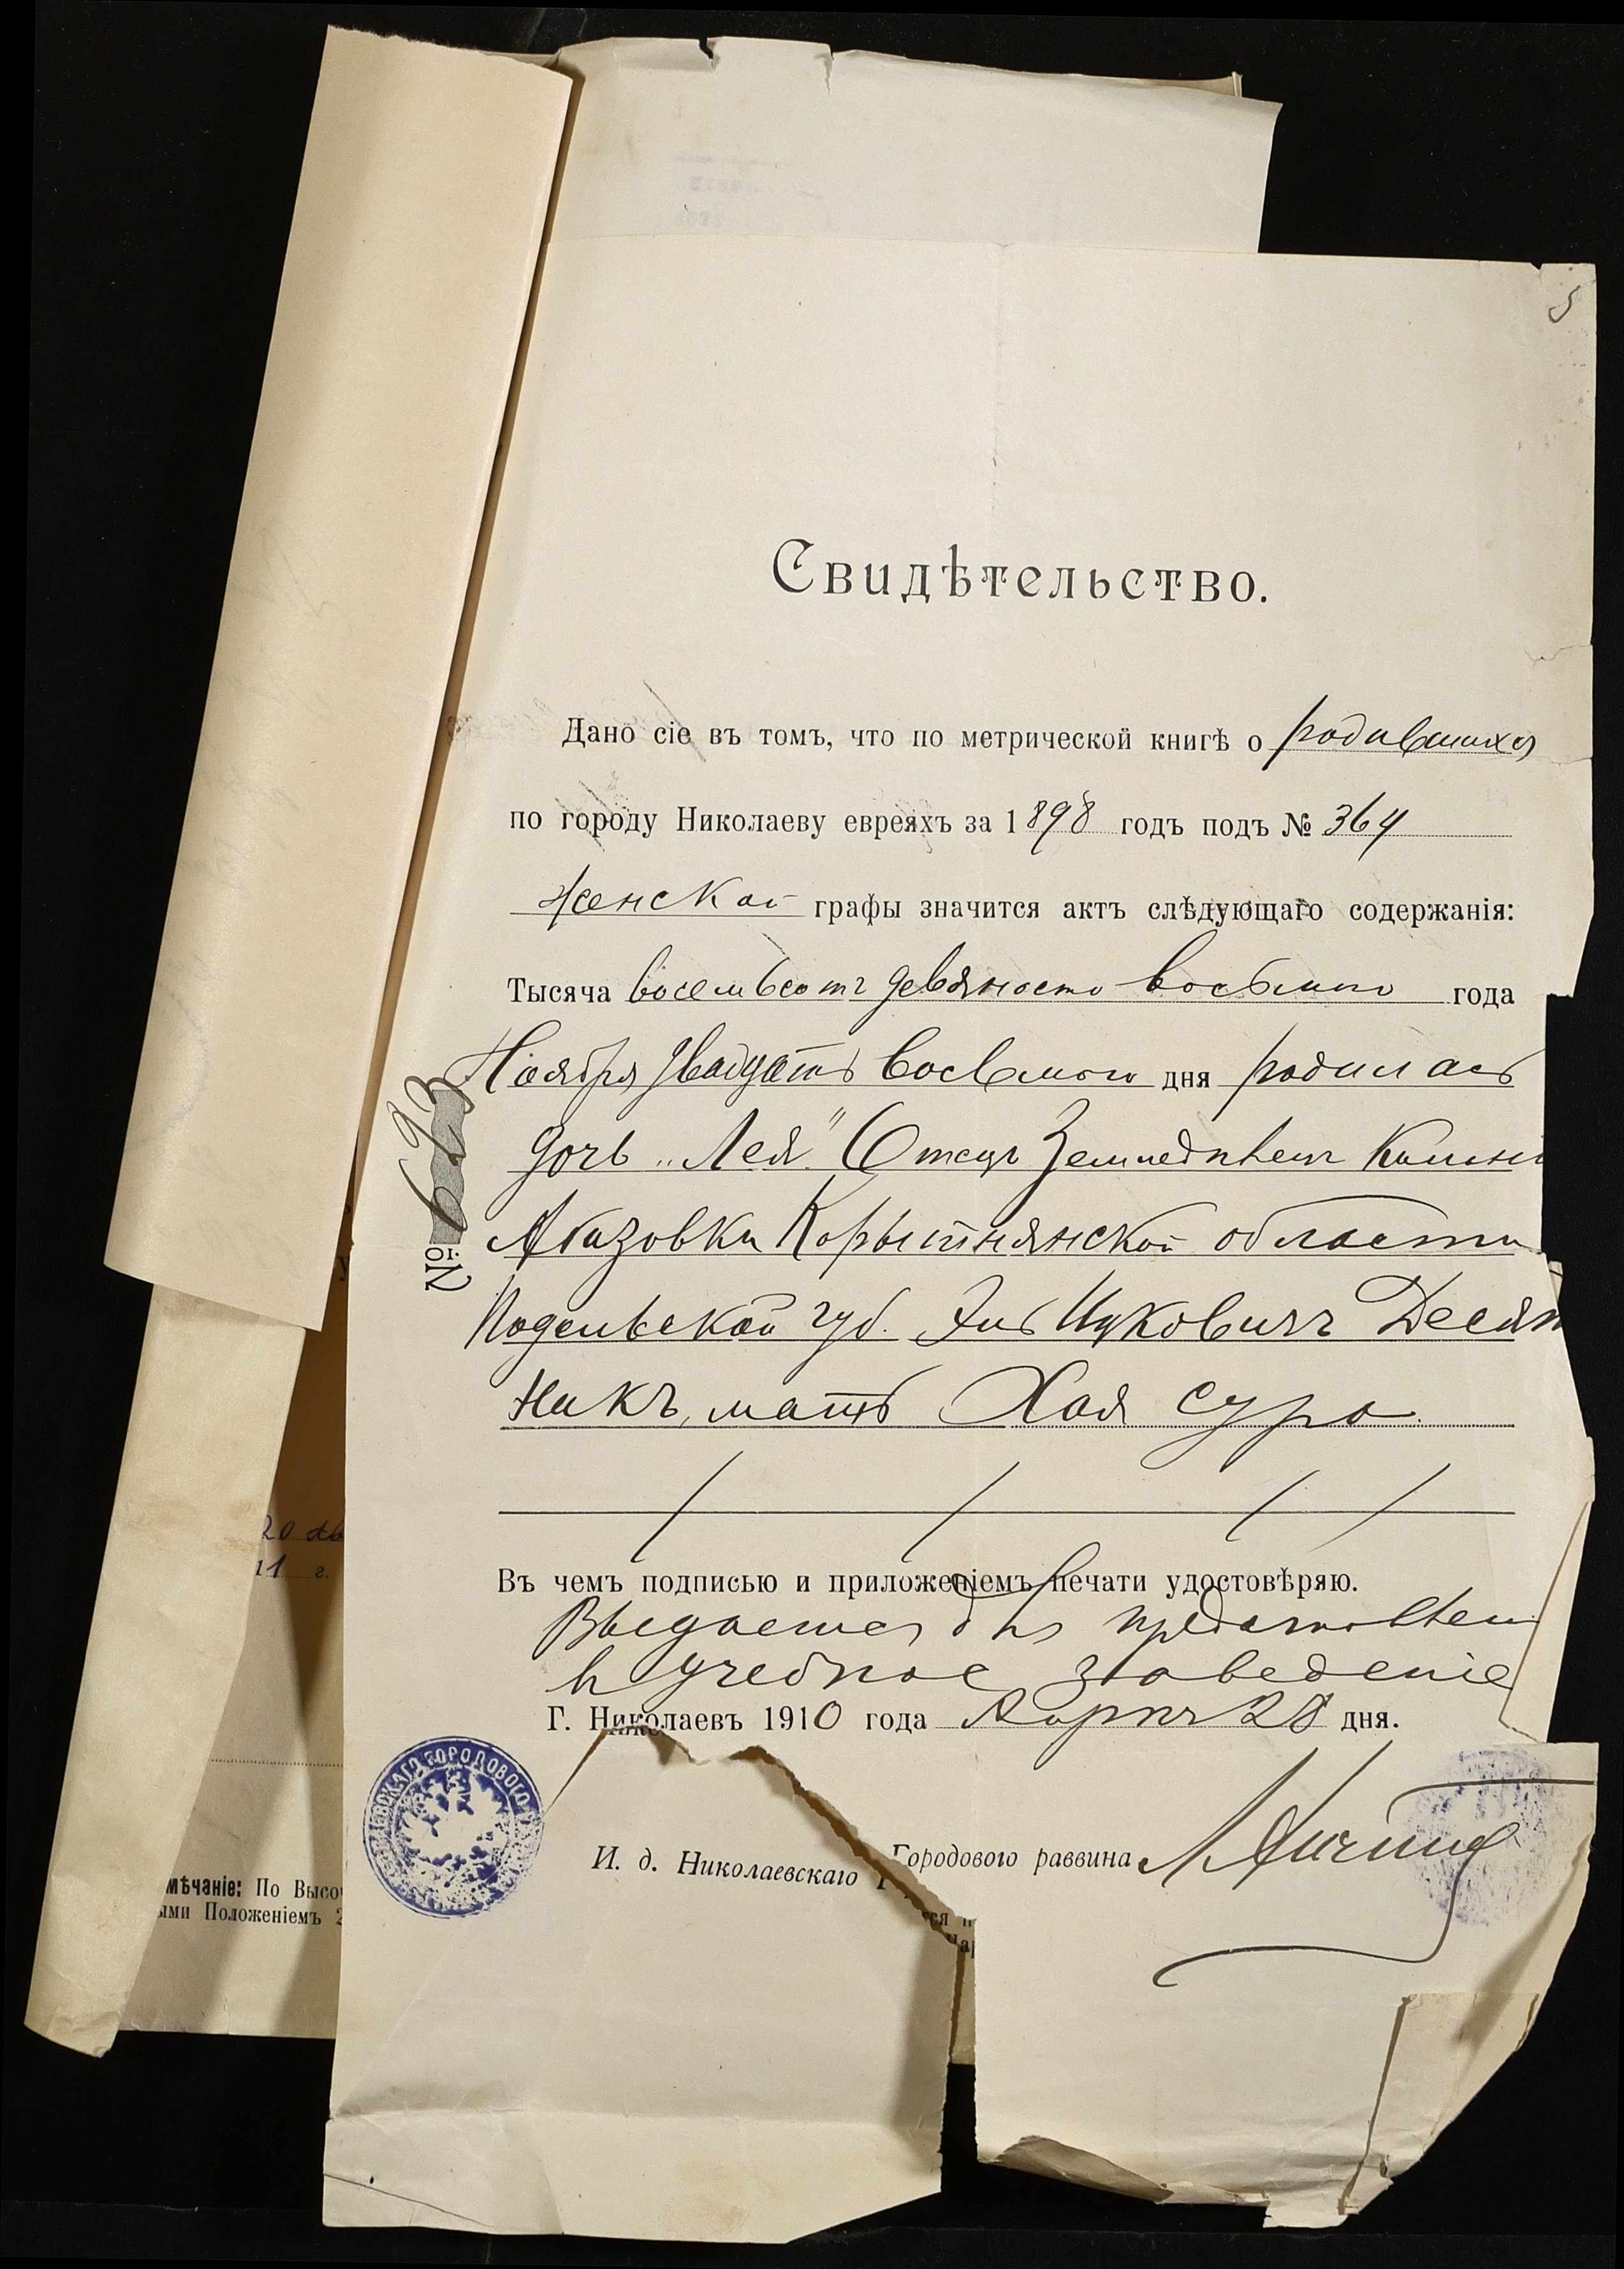 5
Свидѣтельство.
Дано сіе въ томъ, что по метрической книгѣ о родившихся
по городу Николаеву евреяхъ за 1898 годъ подъ № 364
женской графы значится актъ слѣдующаго содержанія:
Тысяча восемьсотъ девяносто восьмого года
Ноября двадцать восьмого дня родилась
дочь „Лея". Отецъ Земледѣлецъ
Корытнянской области
Подольской губ. Ицковичъ Десят
никъ, мать Хая Сура
Въ чемъ подписью и приложеніемъ печати удостовѣряю.
Выдается для
въ учебное заведеніе
Г. Николаевъ 1910 года 28 дня.
И. д. Николаевскаго Городового раввина
№ 693
20
11 г.
мѣчаніе: По Высоч
ыми Положеніемъ 2